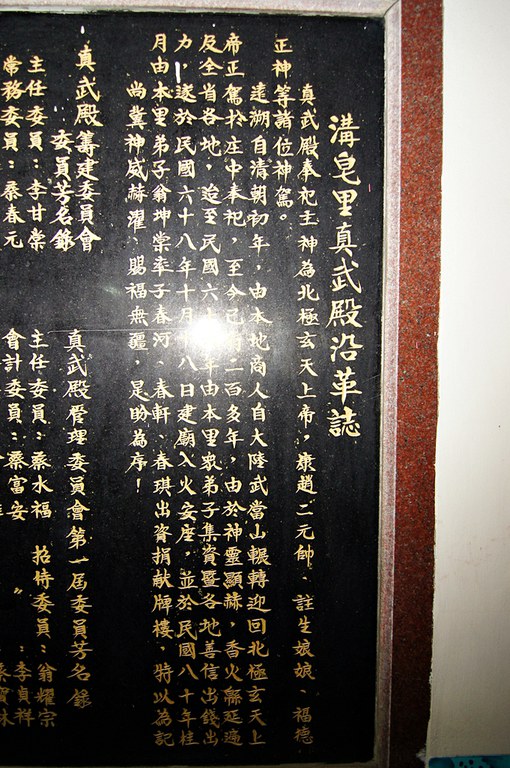 溝皂里真武殿沿革誌
真武殿奉祀主神為北極玄天上帝，康趙二元帥、註生娘娘、福德
正神等諸位神駕。
遠溯自清朝初年，由本地商人自大陸武當山輾轉迎回北極玄天上
帝正駕於庄中奉祀，至今已有二百多年，由於神靈顯赫，香火綿延遍
及全省各地，迨至民國六十年由本里眾弟子集資暨各地善信出錢出
力，遂於民國六十八年十月十八日建廟入火安座，並於民國八十年桂
月由本里弟子翁坤崇率子春河、春軒、春琪出資捐献牌樓，特以為記
尚冀神威赫濯、賜福無疆，是盼為序！
真武殿籌建委員會
委員芳名錄
主任委員：李甘崇
常務委員：蔡春元
真武殿管理委員會第一屆委員芳名錄
主任委員：蔡水福 招待委員：翁耀宗
會計委員：蔡富安 〃 ：李貞祥